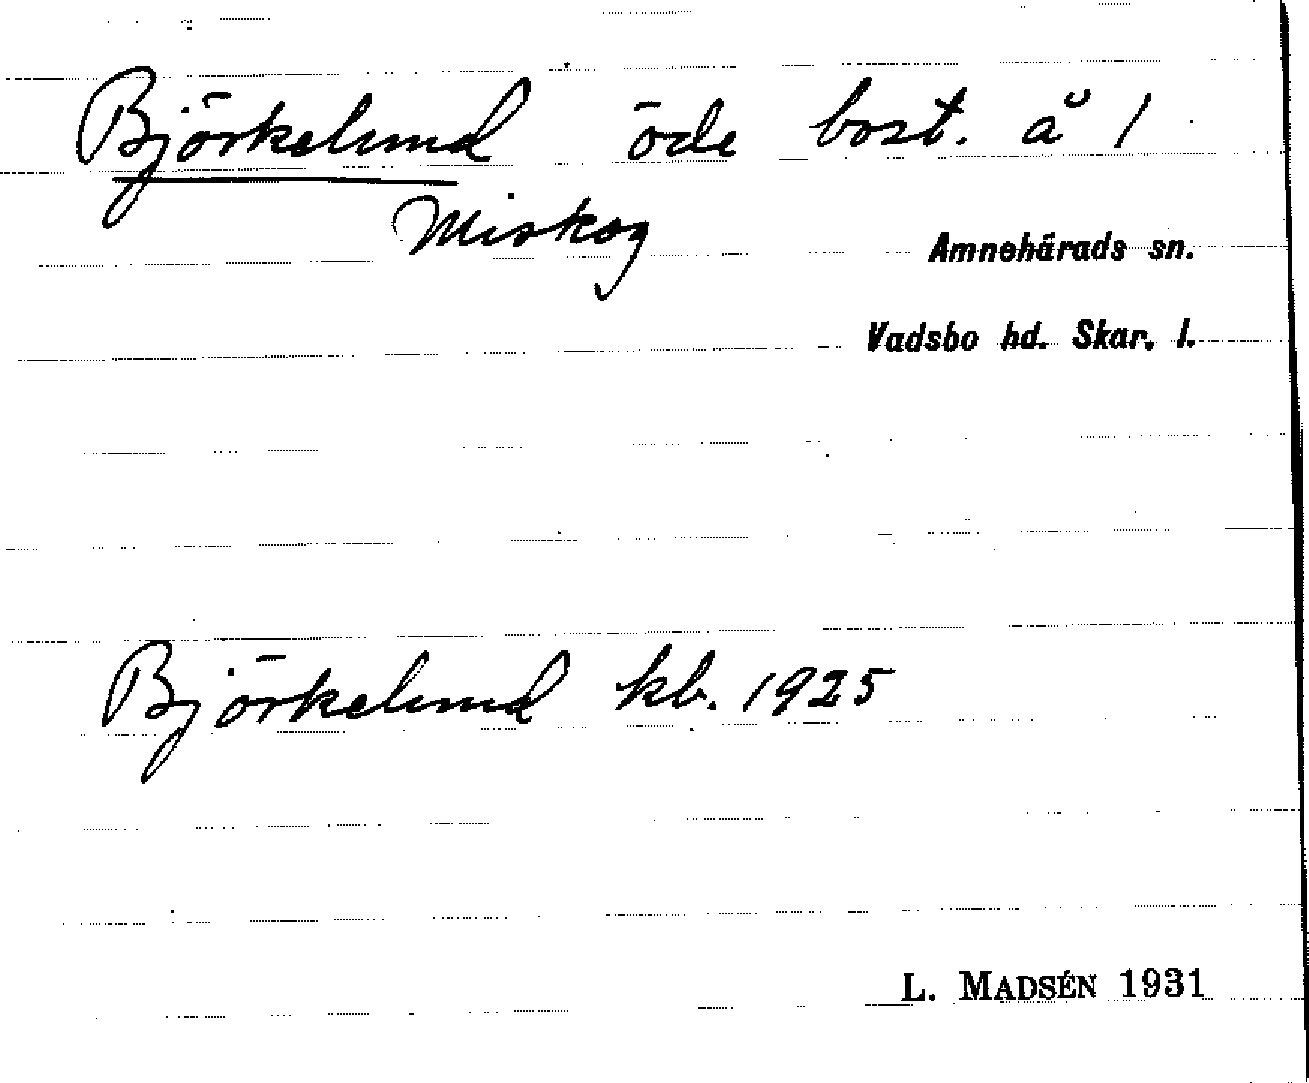 Björkelund öde bost. å 1
Miskog
Amnehärads sn.
Vadsbo hd. Skar. l.
Björkelund kb. 1925
L. MADSÉN 1931